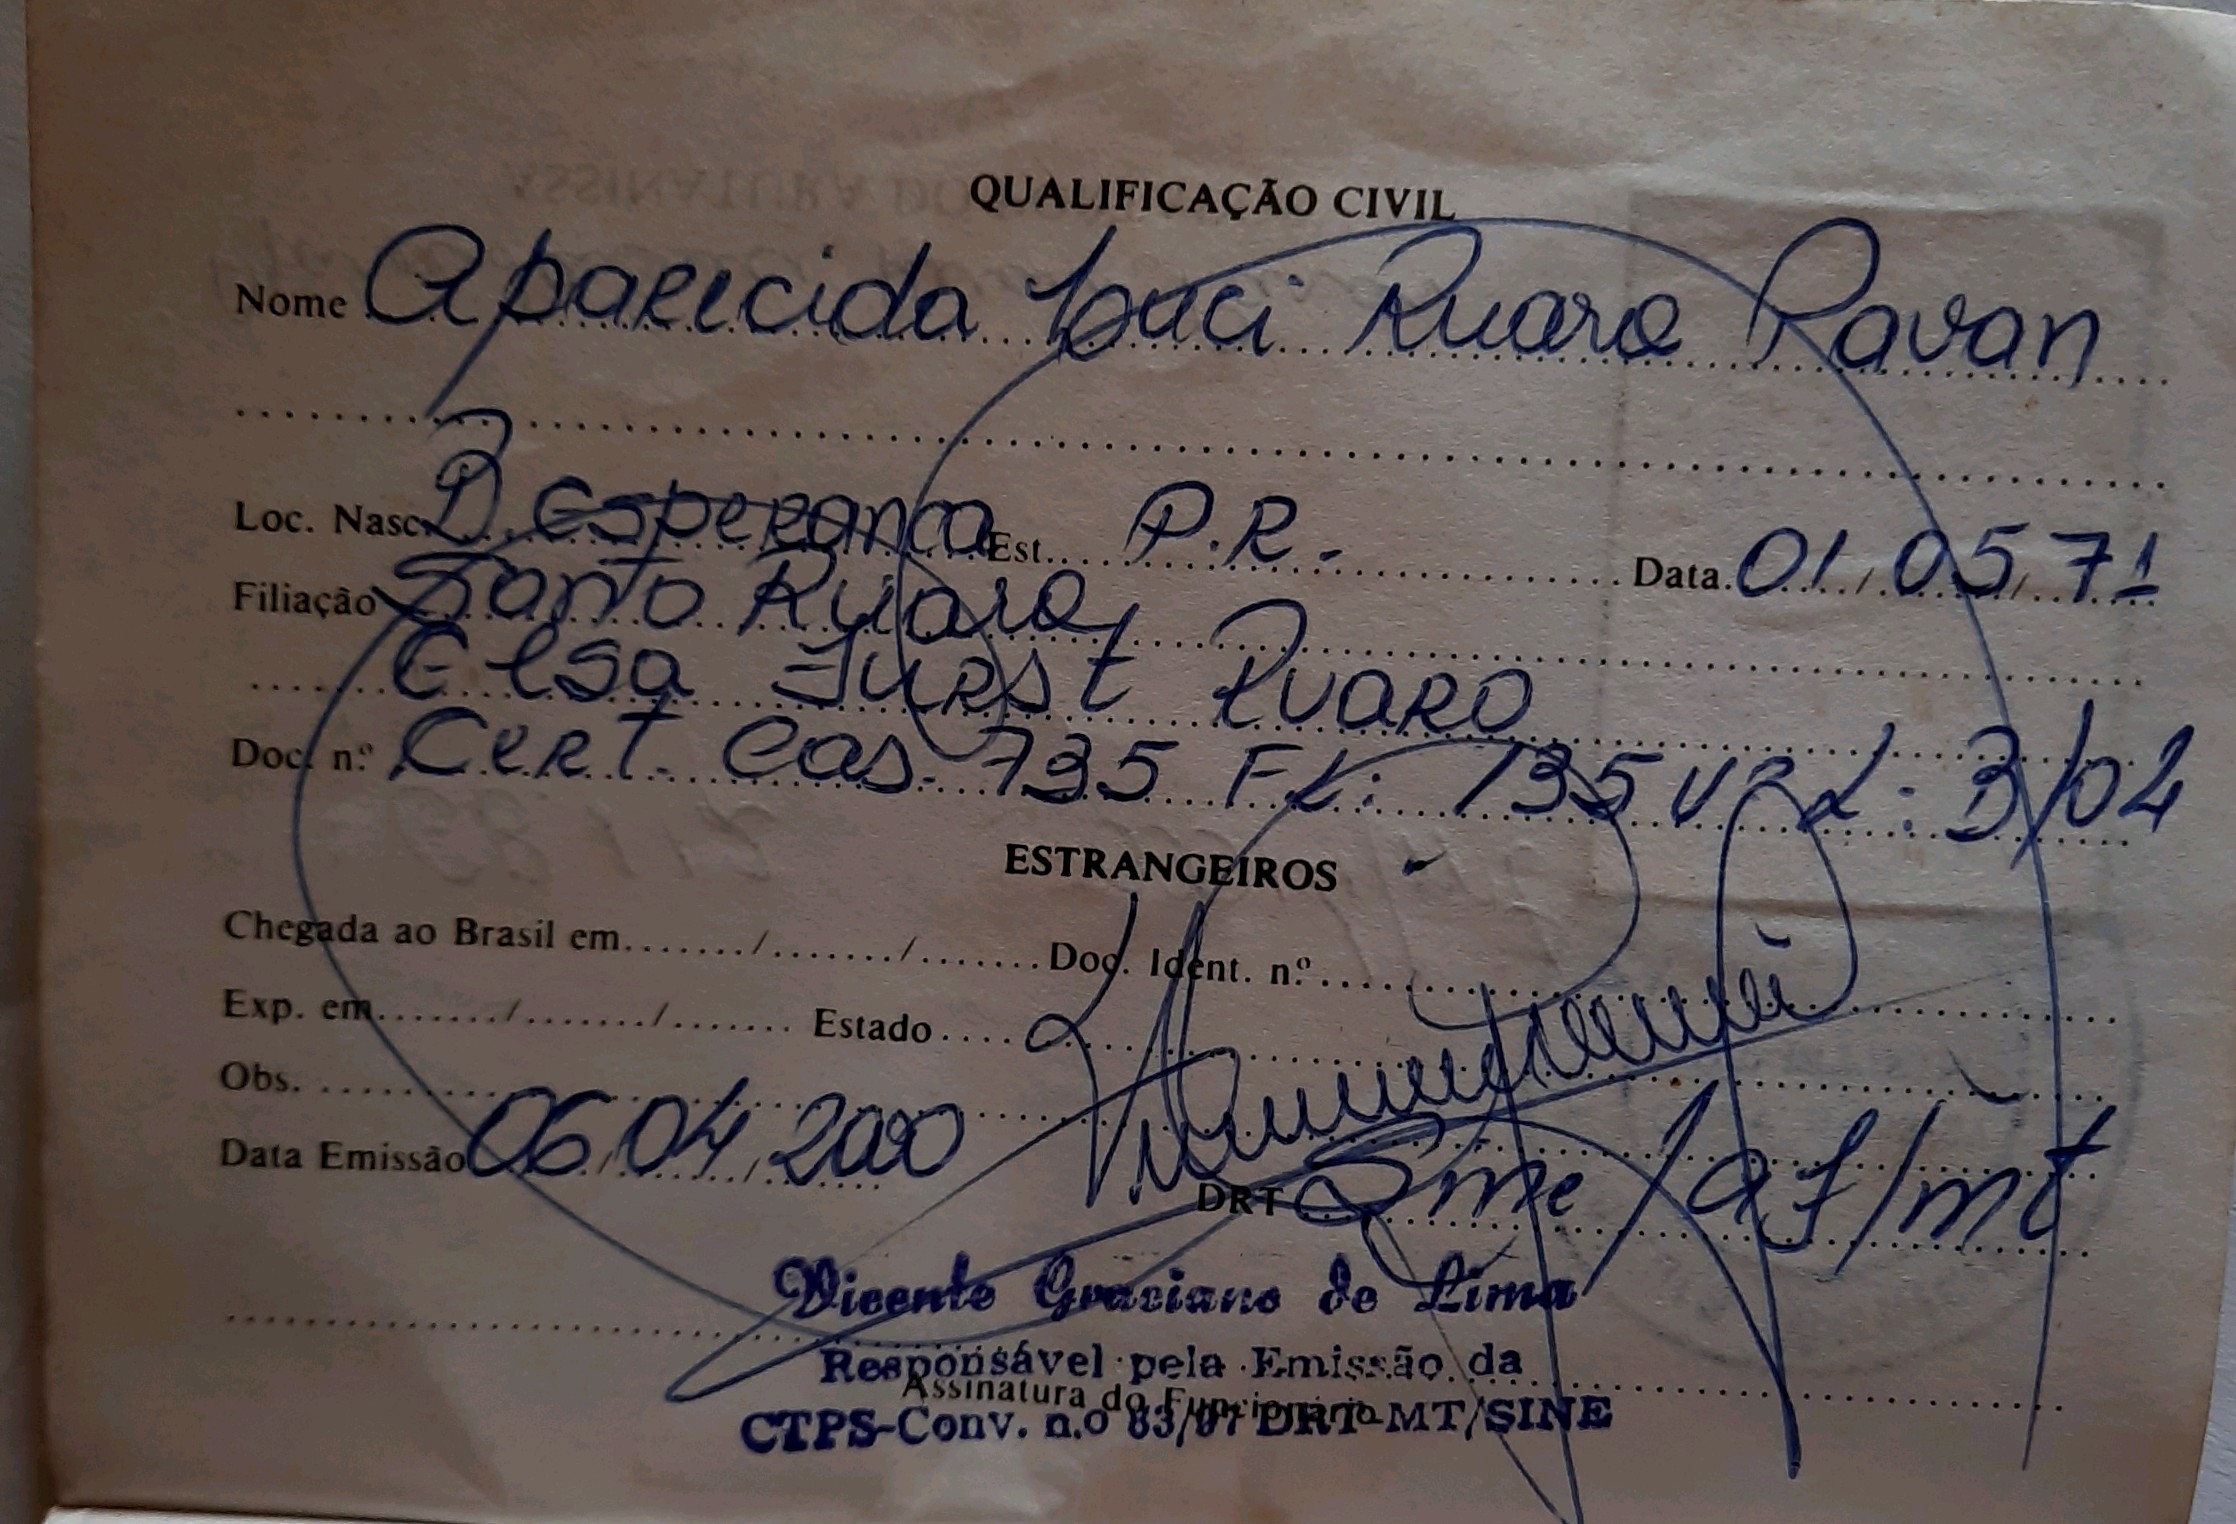 QUALIFICAÇÃO CIVIL
Nome Aparecida Luci Ruaro Pavan
Loc. Nasc. B. Esperança Est. P.R. Data. 01/05/71
Filiação Santo Ruaro
Elsa Furst Ruaro
Doc. n.º Cert. Cas. 735 FL: 135 Vº L: B/04
ESTRANGEIROS
Chegada ao Brasil em ......./......./....... Doc. Ident. n.º
Exp. em ......./......./....... Estado
Obs.
Data Emissão 06/04/2000
DRT Sine/AF/MT
Vicente Graciano de Lima
Responsável pela Emissão da
Assinatura do Funcionário
CTPS-Conv. n.o 03/97 DRT-MT/SINE